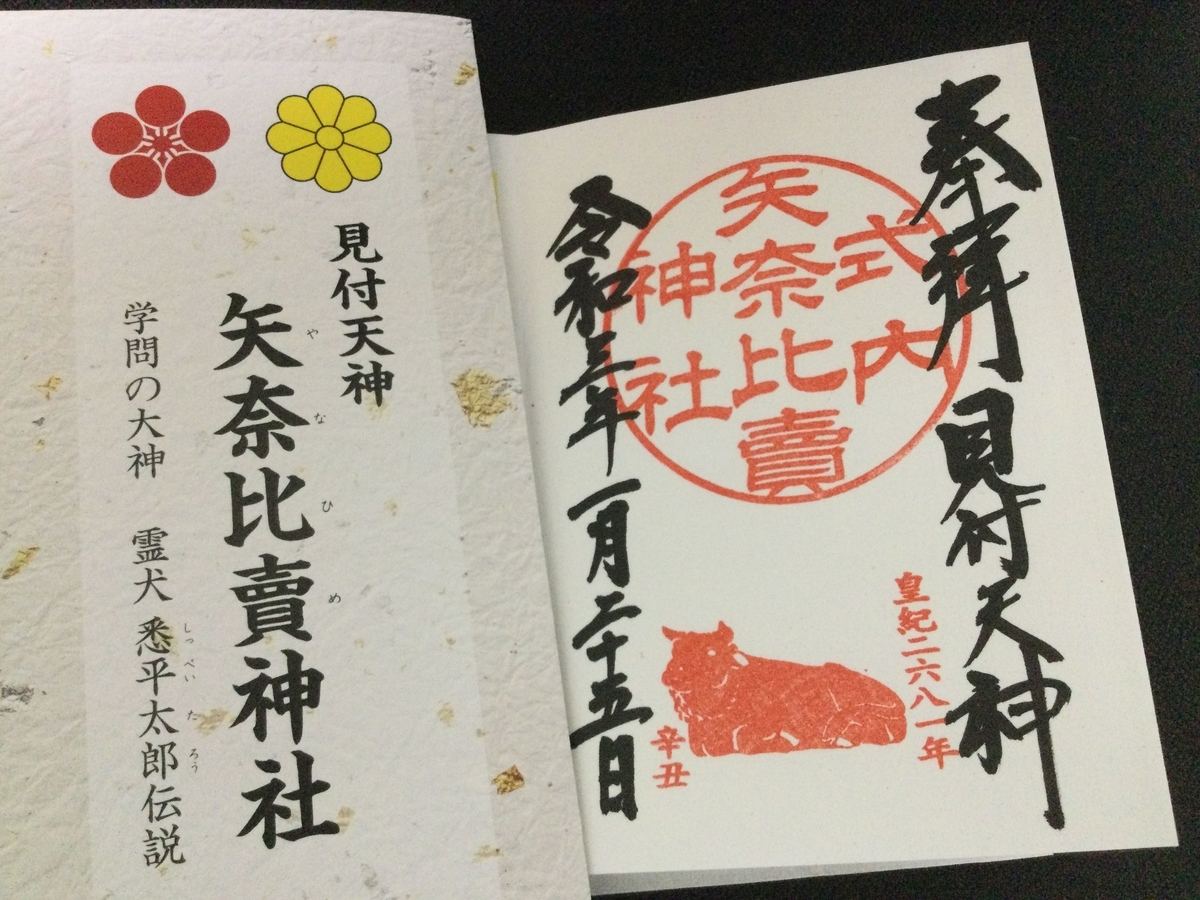 見付天神
矢奈比賣神社
や な ひ め
学問の大神 霊犬 悉平太郎伝説
しっ ぺい た ろう
奉拝 見付天神
皇紀二六八一年
式内
矢奈比賣
神社
辛丑
令和三年一月二十五日